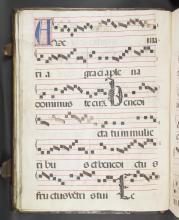 Aue ma
ri a graci a ple na
dominus te cū. benedi
cta tu in mulie
ri bus et benedi ctu s
fructus vētri s tui